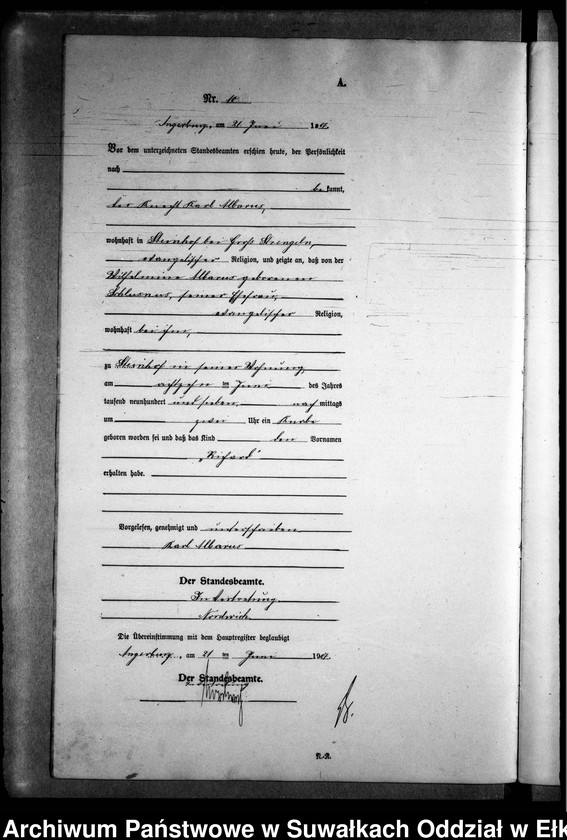 A.
Nr.
Angerburg, am 21 Juni 190
Vor dem unterzeichneten Standesbeamten erschien heute, der Persönlichkeit
nach
be kannt,
der Knecht Karl
wohnhaft in Sternhof bei Groß Strengeln,
evangelischer Religion, und zeigte an, daß von der
Wilhelmine geborenen
seiner Ehefrau,
evangelischer Religion,
wohnhaft bei ihm,
zu Sternhof in seiner Wohnung,
am achtzehn ten Juni des Jahres
tausend neunhundert und sieben, nach mittags
um Uhr ein Knabe
geboren worden sei und daß das Kind den Vornamen
„Richard“
erhalten habe.
Vorgelesen, genehmigt und unterschrieben
Karl
Der Standesbeamte.
In Vertretung
Die Übereinstimmung mit dem Hauptregister beglaubigt
Angerburg, am 21 ten Juni 1907.
Der Standesbeamte.
In Vertretung
R.-R.
Archiwum Państwowe w Suwałkach Oddział w Ełk